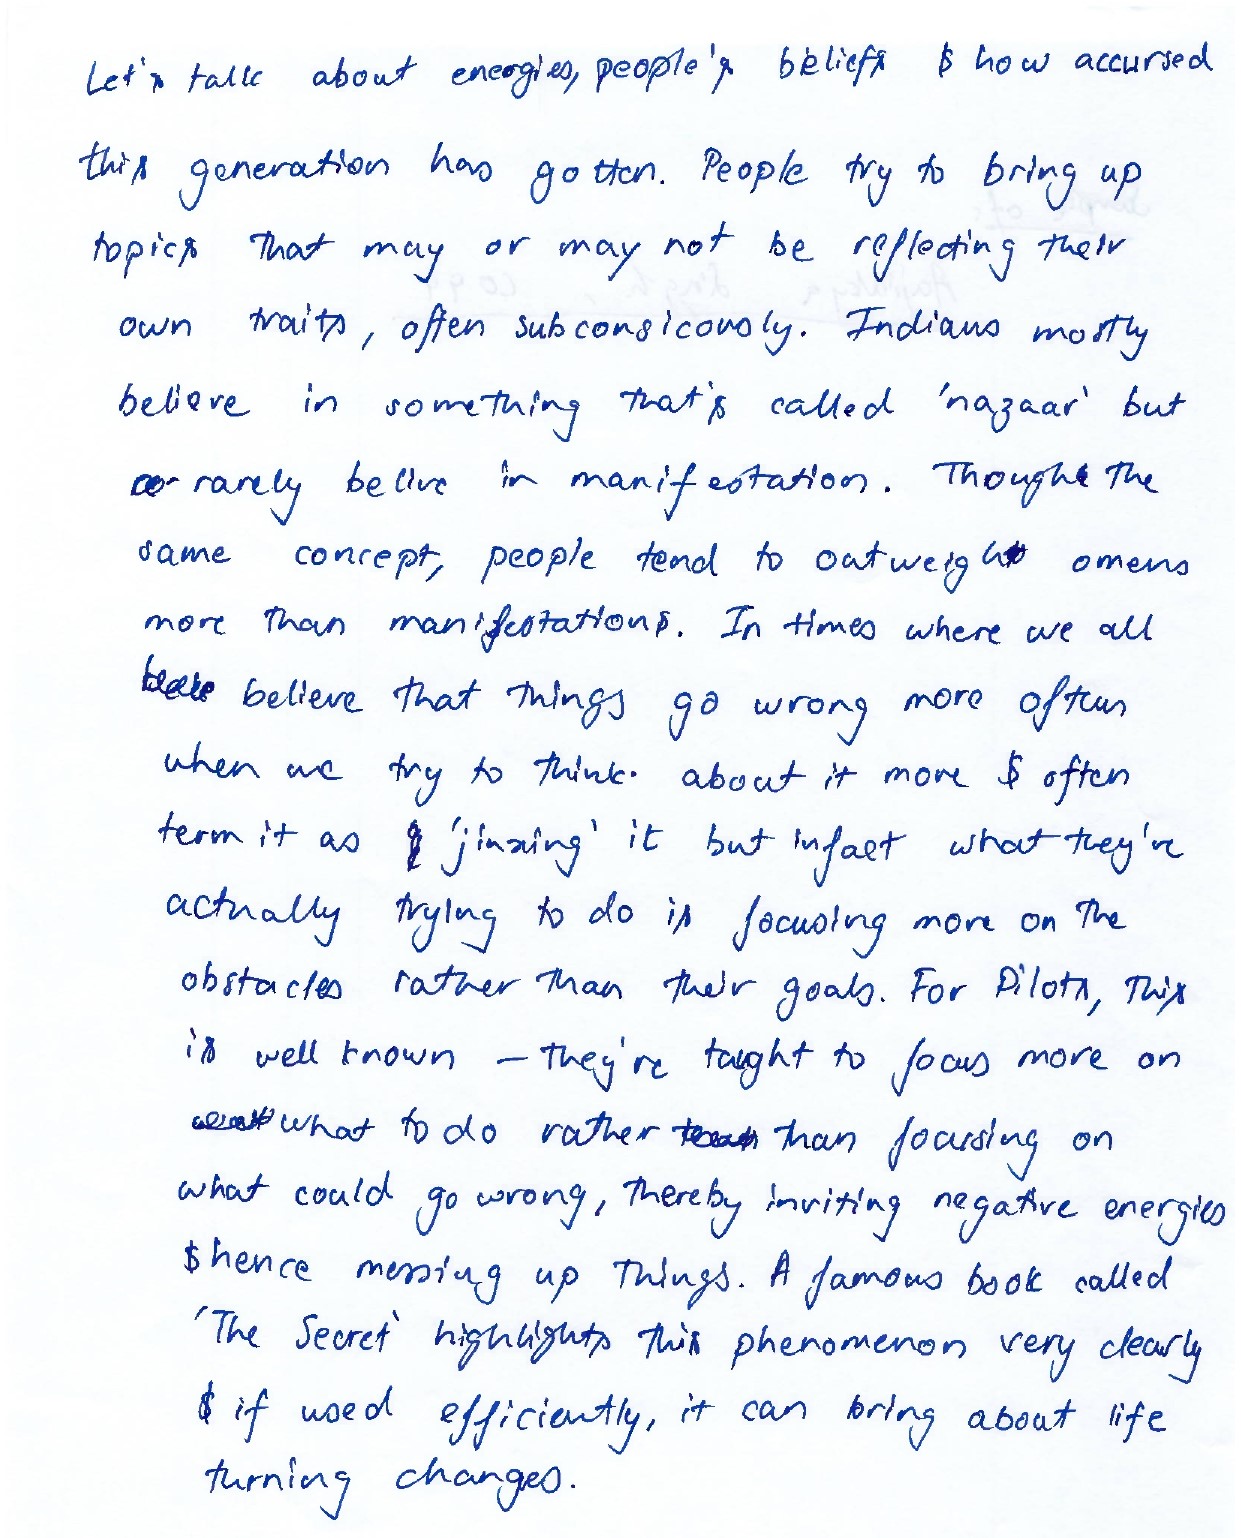 Let's talk about energies, people's beliefs & how accursed
this generation has gotten. People try to bring up
topics that may or may not be reflecting their
own traits, often subconsicously. Indians mostly
believe in something that's called 'nazaar' but
rarely belive in manifestation. Thought the
same concept, people tend to outweigh omens
more than manifestations. In times where we all
believe that things go wrong more often
when we try to think about it more & often
term it as 'jinxing' it but infact what they're
actually trying to do is focusing more on the
obstacles rather than their goals. For Pilots, this
is well known – they're taught to focus more on
what to do rather than focusing on
what could go wrong, thereby inviting negative energies
& hence messing up things. A famous book called
'The Secret' highlights this phenomenon very clearly
& if used efficiently, it can bring about life
turning changes.